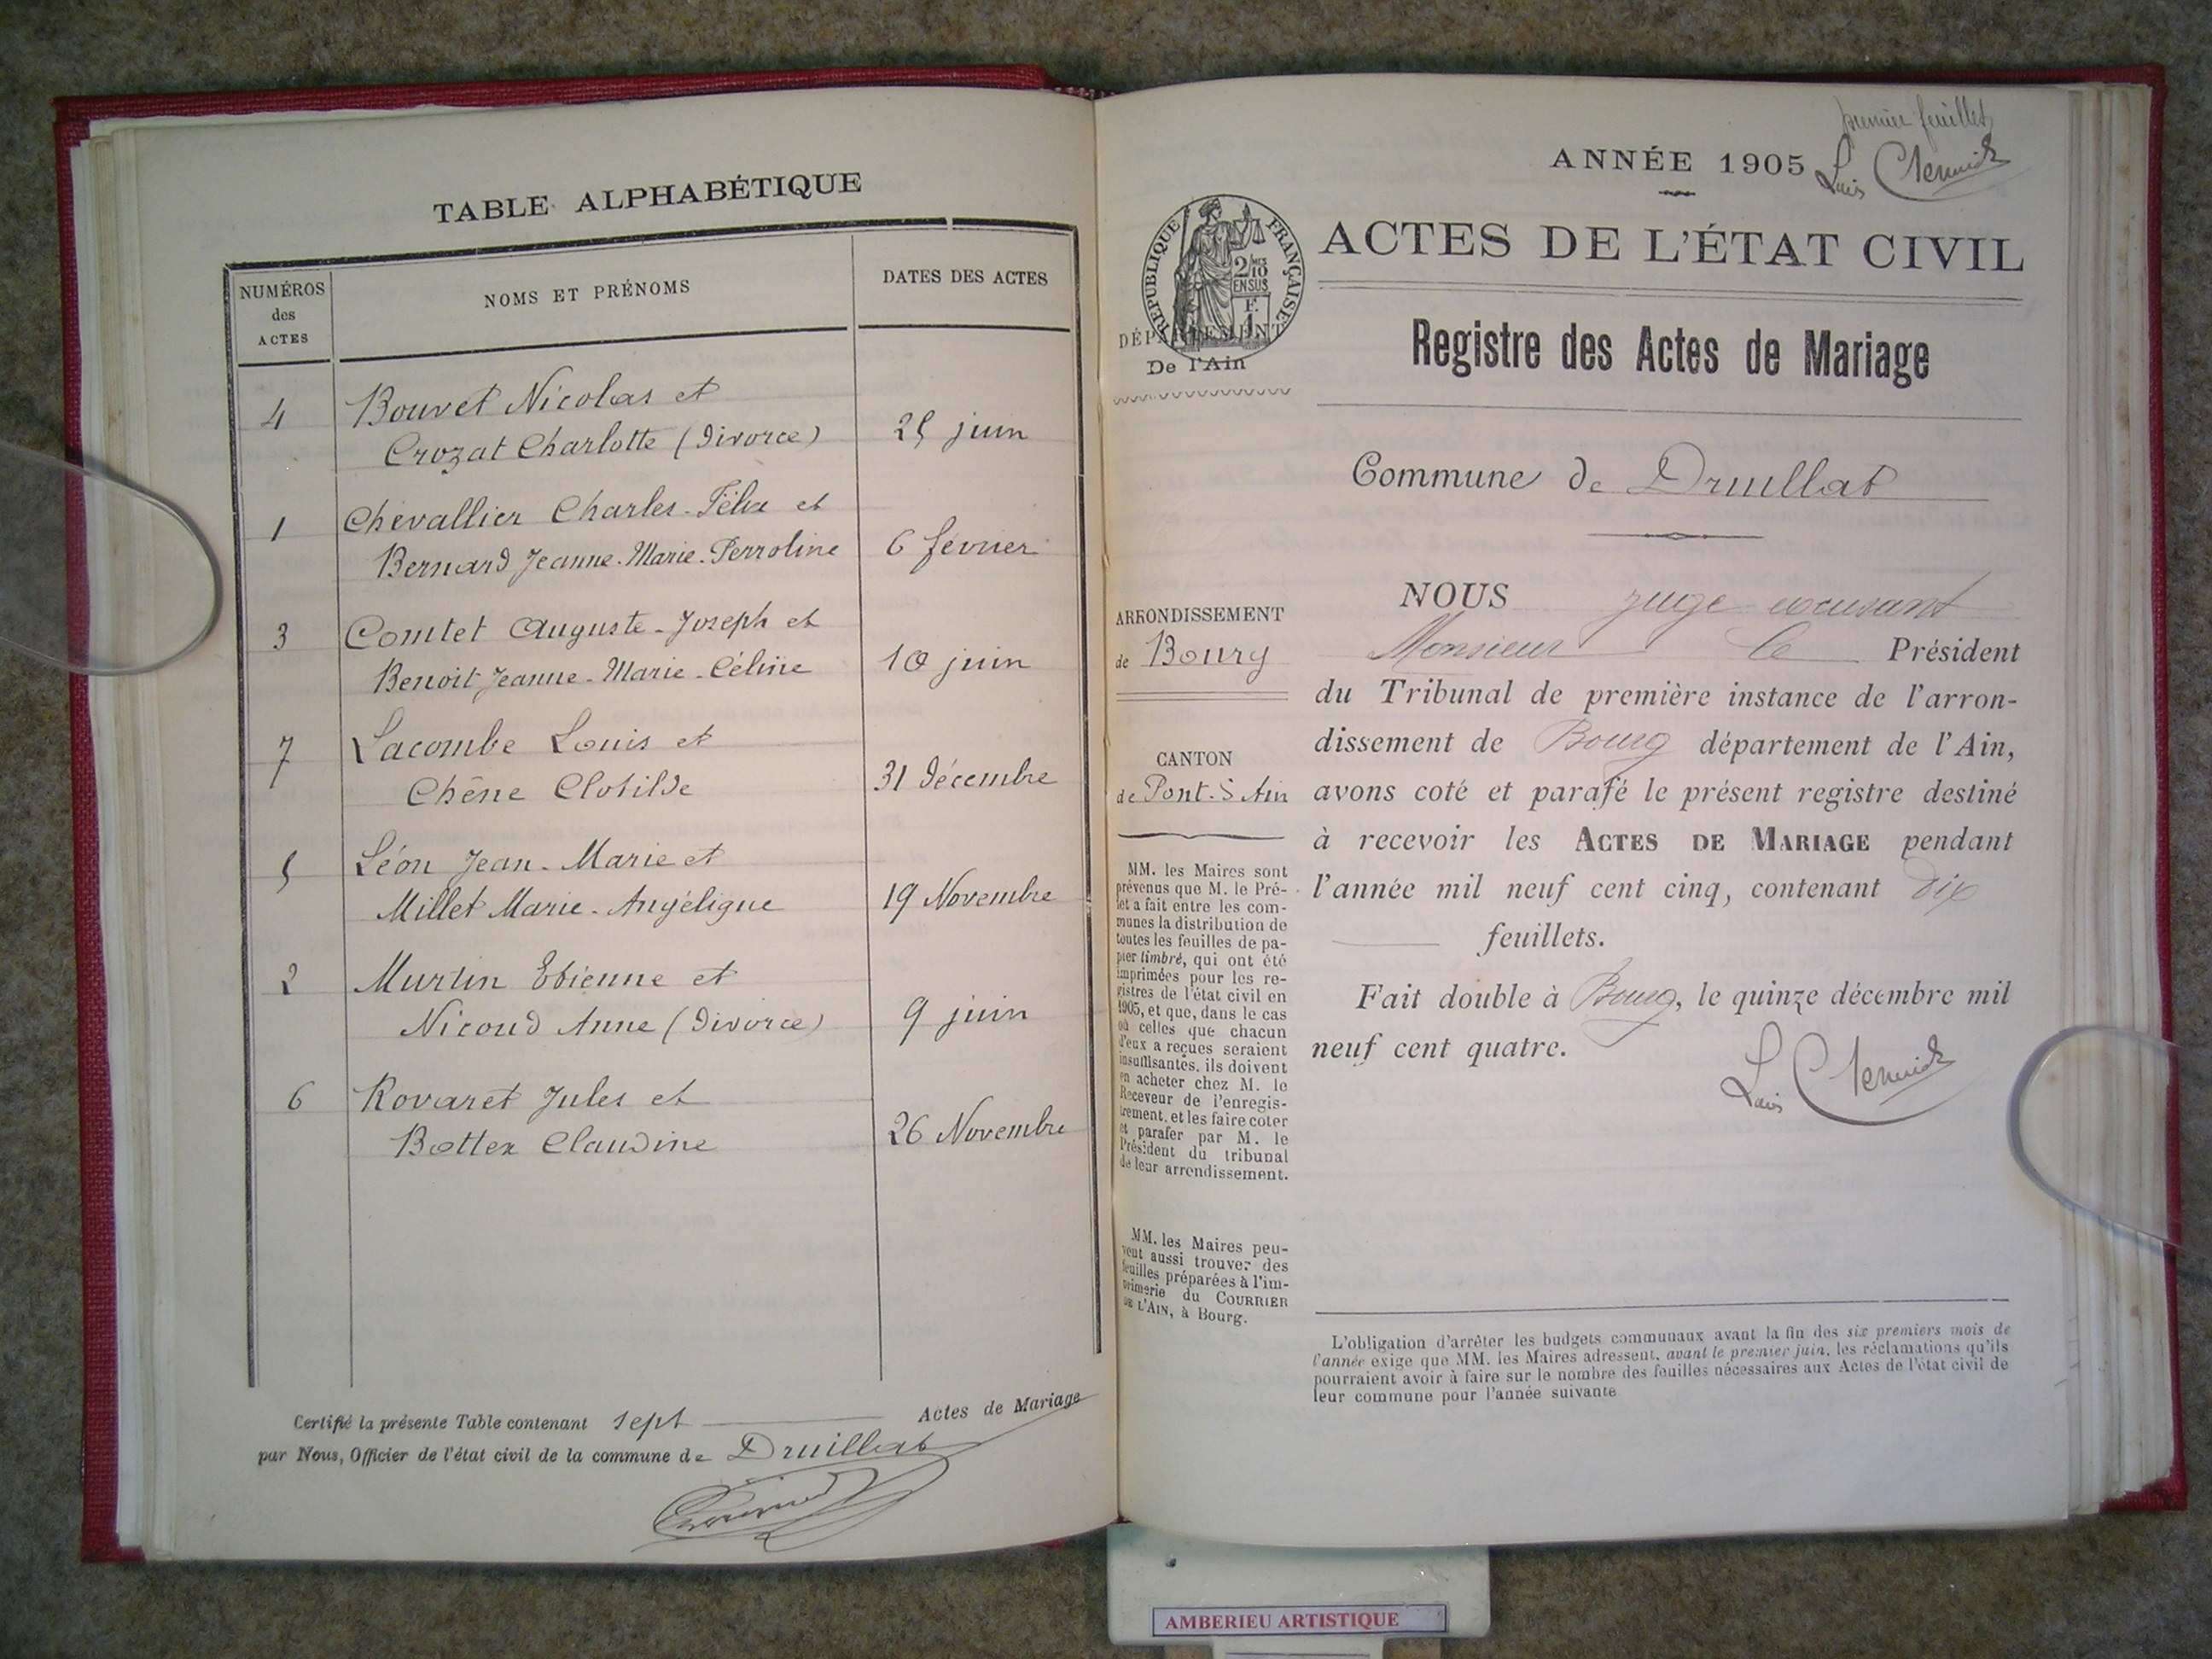 TABLE ALPHABÉTIQUE
NUMÉROS
des
ACTES
NOMS ET PRÉNOMS
DATES DES ACTES
4 Bouvet Nicolas et
Crozat Charlotte (Divorce) 25 juin
1 Chevallier Charles-Félix et
Bernard Jeanne-Marie-Perroline 6 février
3 Comtet Auguste-Joseph et
Benoit Jeanne-Marie-Céline 10 juin
7 Lacombe Louis et
Chêne Clotilde 31 décembre
5 Léon Jean-Marie et
Millet Marie-Angélique 19 Novembre
2 Murtin Etienne et
Nicoud Anne (Divorce) 9 juin
6 Rovaret Jules et
Bottex Claudine 26 Novembre
Certifié la présente Table contenant sept Actes de Mariage
par Nous, Officier de l'état civil de la commune de Druillat
premier feuillet
ANNÉE 1905
Louis
ACTES DE L'ÉTAT CIVIL
RÉPUBLIQUE FRANÇAISE
2/10 MES
EN SUS
F.
1
DÉPARTEMENT
De l'Ain
Registre des Actes de Mariage
Commune de Druillat
ARRONDISSEMENT
de Bourg
CANTON
de Pont-d'Ain
MM. les Maires sont
prévenus que M. le Pré-
fet a fait entre les com-
munes la distribution de
toutes les feuilles de pa-
pier timbré, qui ont été
imprimées pour les re-
gistres de l'état civil en
1905, et que, dans le cas
où celles que chacun
d'eux a reçues seraient
insuffisantes, ils doivent
en acheter chez M. le
Receveur de l'enregis-
trement, et les faire coter
et parafer par M. le
Président du tribunal
de leur arrondissement.
MM. les Maires peu-
vent aussi trouver des
feuilles préparées à l'im-
primerie du COURRIER
DE L'AIN, à Bourg.
NOUS juge
Monsieur le Président
du Tribunal de première instance de l'arron-
dissement de Bourg département de l'Ain,
avons coté et parafé le présent registre destiné
à recevoir les ACTES DE MARIAGE pendant
l'année mil neuf cent cinq, contenant dix
feuillets.
Fait double à Bourg, le quinze décembre mil
neuf cent quatre.
Louis
L'obligation d'arrêter les budgets communaux avant la fin des six premiers mois de
l'année exige que MM. les Maires adressent, avant le premier juin, les réclamations qu'ils
pourraient avoir à faire sur le nombre des feuilles nécessaires aux Actes de l'état civil de
leur commune pour l'année suivante
AMBERIEU ARTISTIQUE